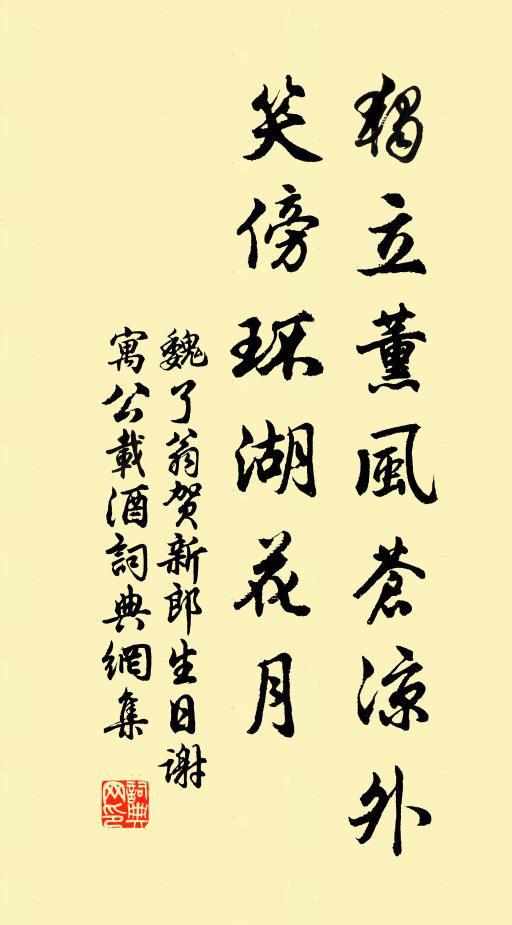 獨立薰風蒼凉外
笑傍環湖花月
魏了翁賀新郎生日謝
寓公載酒詞典網集
詞典网印